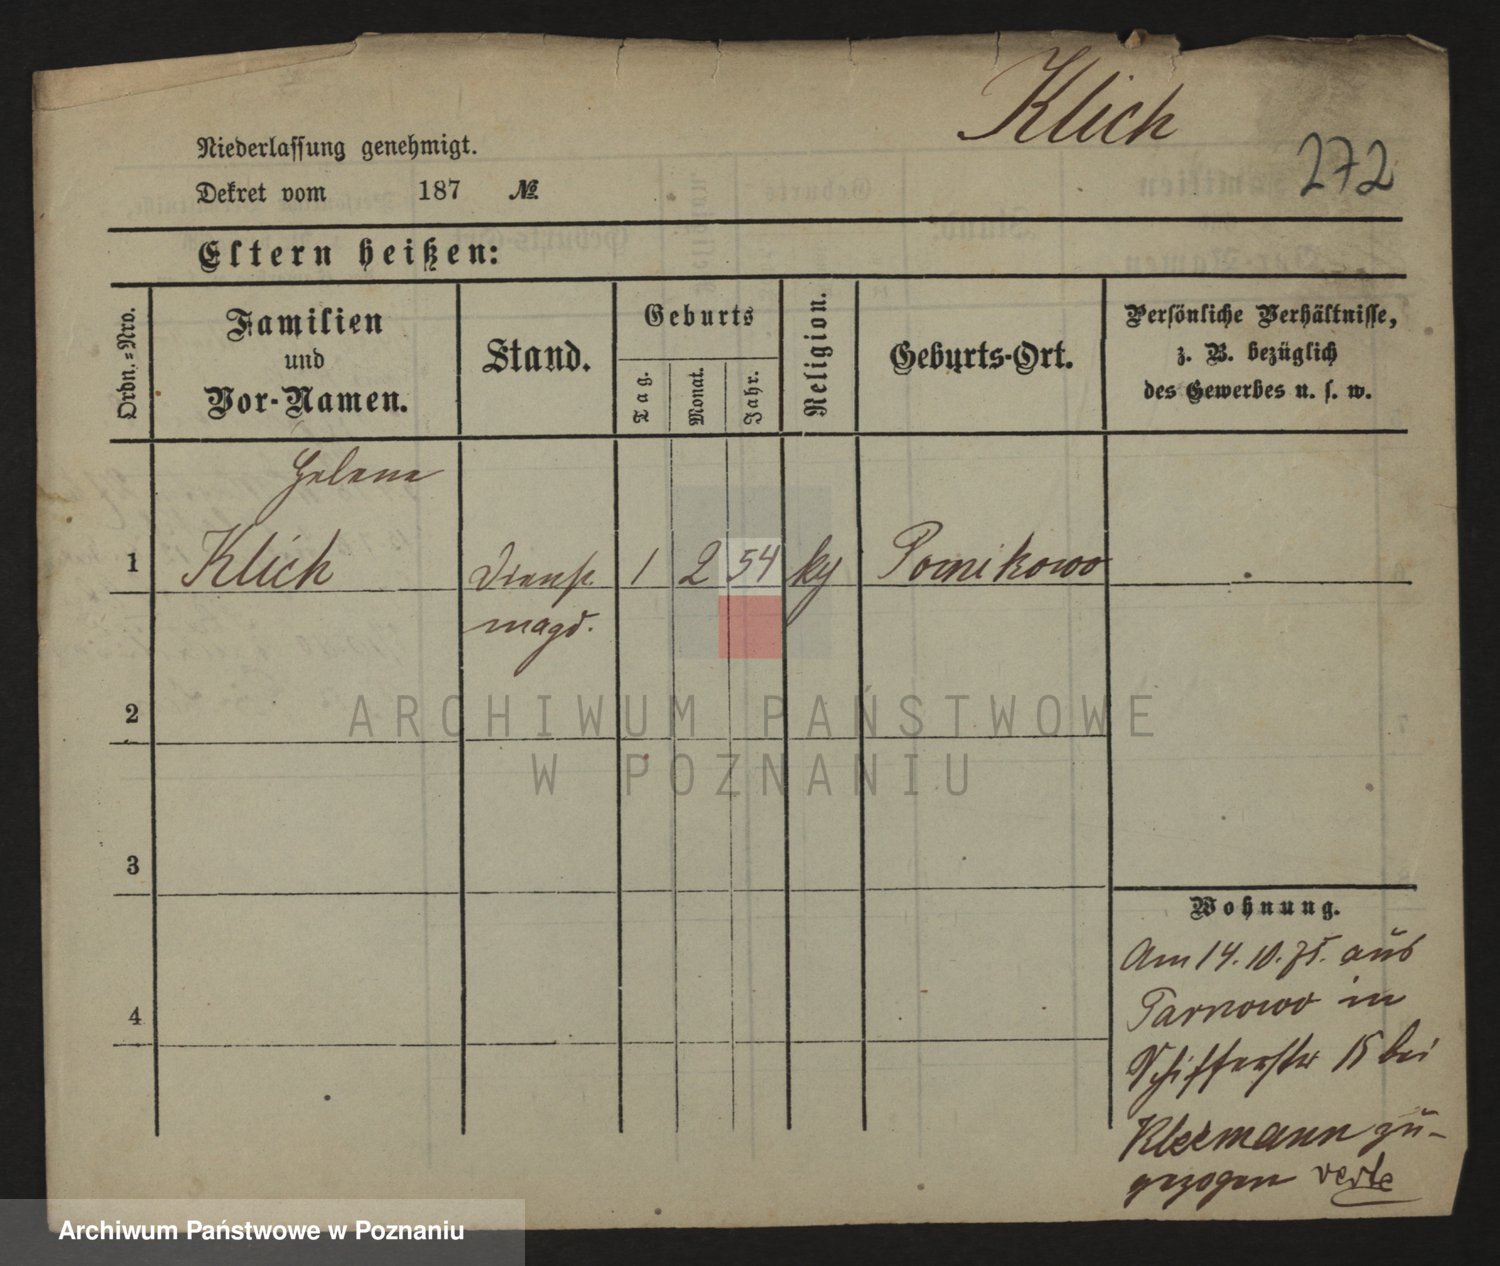 Klich
272
Niederlassung genehmigt.
Dekret vom 187 №
Eltern heißen:
Ordn.-Nro.
Familien
und
Vor-Namen.
Stand.
Geburts
Tag.
Monat.
Jahr.
Religion.
Geburts-Ort.
Persönliche Verhältnisse,
z. B. bezüglich
des Gewerbes u. s. w.
Helene
1 Klich Dienst 1 2 54 Pomikowo
magd.
2
3
4
ARCHIWUM PAŃSTWOWE
W POZNANIU
Wohnung.
Am 14. 10. 75. aus
Tarnowo in
Schifferstr 15 bei
Kleemann zu-
gezogen verte
Archiwum Państwowe w Poznaniu